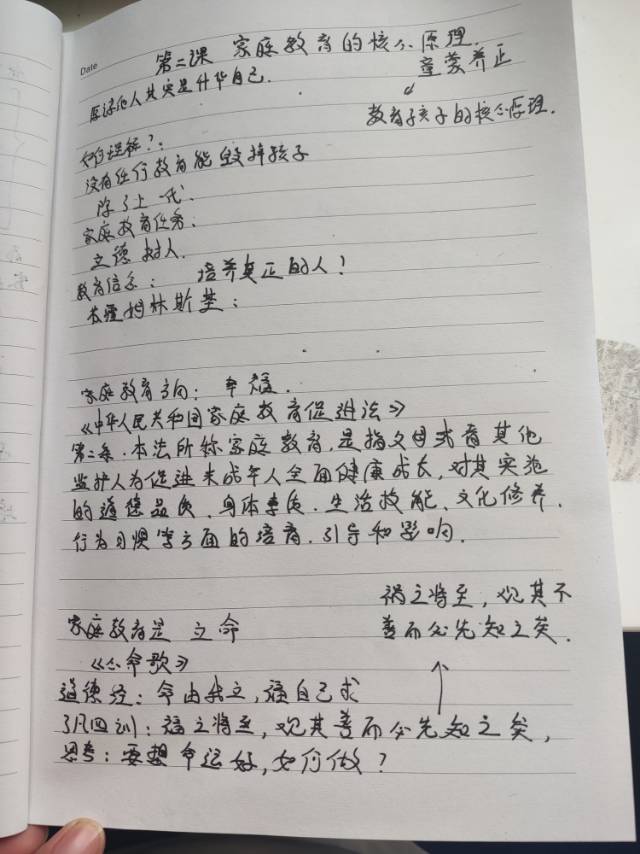 Date
第二课 家庭教育的核心原理.
童蒙养正
原谅他人其实是升华自己.
教育孩子的核心原理.
如何理解?.
没有任何教育能毁掉孩子
除了上一代.
家庭教育任务:
立德树人.
教育信念: 培养真正的人!
苏霍姆林斯基:
家庭教育方向: 幸福.
《中华人民共和国家庭教育促进法》
第二条.本法所称家庭教育,是指父母或者其他
监护人为促进未成年人全面健康成长,对其实施
的道德品质、身体素质、生活技能、文化修养、
行为习惯等方面的培育、引导和影响.
祸之将至,观其不
善而必先知之矣.
家庭教育是 立命
《心命歌》
道德经: 命由我立,福自己求
了凡四训: 福之将至,观其善而必先知之矣,
思考: 要想命运好,如何做?